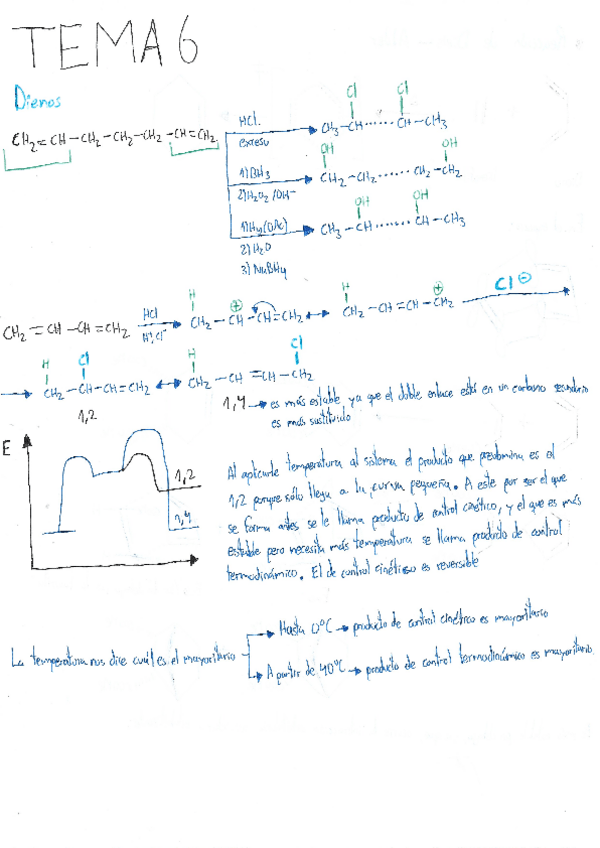 TEMA 6
Dienos
CH₂=CH-CH₂-CH₂-CH₂-CH=CH₂
HCl
exceso
Cl Cl
CH₃-CH······CH-CH₃
1) BH₃
2) H₂O₂/OH⁻
OH OH
CH₂-CH₂······CH₂-CH₂
1) Hg(OAc)
2) H₂O
3) NaBH₄
OH OH
CH₃-CH······CH-CH₃
CH₂=CH-CH=CH₂
HCl
H⁺, Cl⁻
H ⊕
CH₂-CH-CH=CH₂
H ⊕
CH₂-CH=CH-CH₂
Cl⊖
H Cl
CH₂-CH-CH=CH₂
1,2
H Cl
CH₂-CH=CH-CH₂
1,4 → es más estable ya que el doble enlace está en un carbono secundario
es más sustituido
E
1,2
1,4
Al aplicarle temperatura al sistema el producto que predomina es el
1,2 porque sólo llega a la curva pequeña. A este por ser el que
se forma antes se le llama producto de control cinético, y el que es más
estable pero necesita más temperatura se llama producto de control
termodinámico. El de control cinético es reversible
La temperatura nos dice cuál es el mayoritario
Hasta 0ºC → producto de control cinético es mayoritario
A partir de 40ºC → producto de control termodinámico es mayoritario